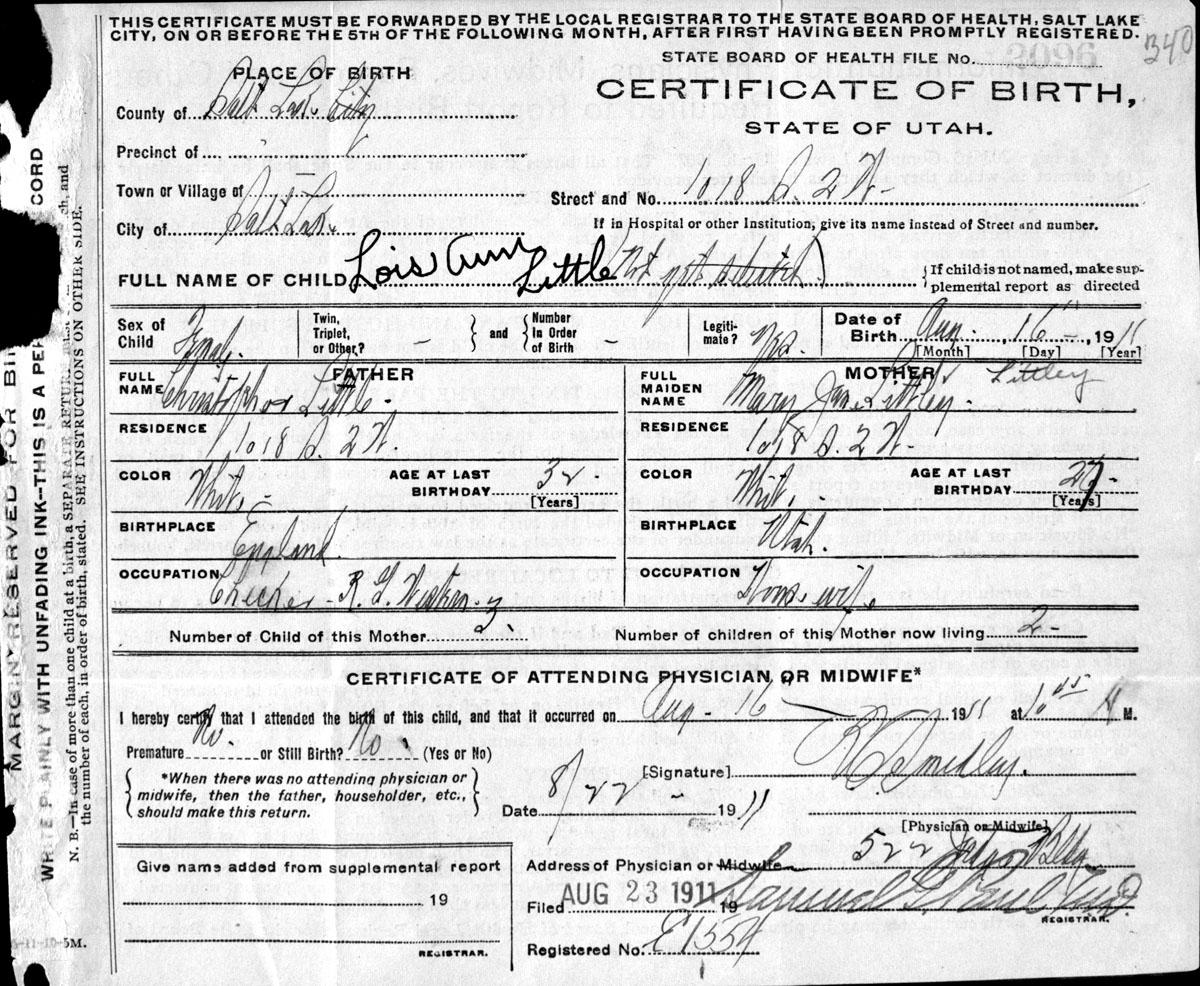 THIS CERTIFICATE MUST BE FORWARDED BY THE LOCAL REGISTRAR TO THE STATE BOARD OF HEALTH, SALT LAKE
CITY, ON OR BEFORE THE 5TH OF THE FOLLOWING MONTH, AFTER FIRST HAVING BEEN PROMPTLY REGISTERED.
340
STATE BOARD OF HEALTH FILE No.
PLACE OF BIRTH
CERTIFICATE OF BIRTH,
County of Salt Lake City
STATE OF UTAH.
Precinct of
Town or Village of
Street and No. 1018 S. 2 W-
City of Salt Lake
If in Hospital or other Institution, give its name instead of Street and number.
FULL NAME OF CHILD Lois Ann Little (Not yet selected)
{If child is not named, make supplemental report as directed
Sex of Child Female. Twin, Triplet, or Other? - } and { Number in Order of Birth - Legitimate? Date of Birth Aug. 16 - 1911
[Month] [Day] [Year]
FATHER
FULL NAME Christopher Little
MOTHER Littley
FULL MAIDEN NAME Mary Jane Littley.
RESIDENCE 1018 S. 2 W.
RESIDENCE 1018 S. 2 W.
COLOR White - AGE AT LAST BIRTHDAY 32 [Years]
COLOR White. AGE AT LAST BIRTHDAY 27 [Years]
BIRTHPLACE England
BIRTHPLACE Utah.
OCCUPATION Checker R. G. Western
OCCUPATION Housewife
Number of Child of this Mother 3. Number of children of this Mother now living 2-
CERTIFICATE OF ATTENDING PHYSICIAN OR MIDWIFE*
I hereby certify that I attended the birth of this child, and that it occurred on Aug - 16 1911 at 10 45 M.
Premature No. or Still Birth? No. (Yes or No)
{ *When there was no attending physician or midwife, then the father, householder, etc., should make this return. }
[Signature] Smedley.
Date 8/22 - 1911
[Physician or Midwife]
Give name added from supplemental report
19
REGISTRAR.
Address of Physician or Midwife 522 Bldg.
Filed AUG 23 1911 19 Samuel G. Paul
REGISTRAR.
Registered No. E1554
MARGIN RESERVED FOR BIN
WRITE PLAINLY WITH UNFADING INK--THIS IS A PER CORD
N. B.—In case of more than one child at a birth, a SEPARATE RETURN must ch, and
the number of each, in order of birth, stated. SEE INSTRUCTIONS ON OTHER SIDE.
-11-10-5M.